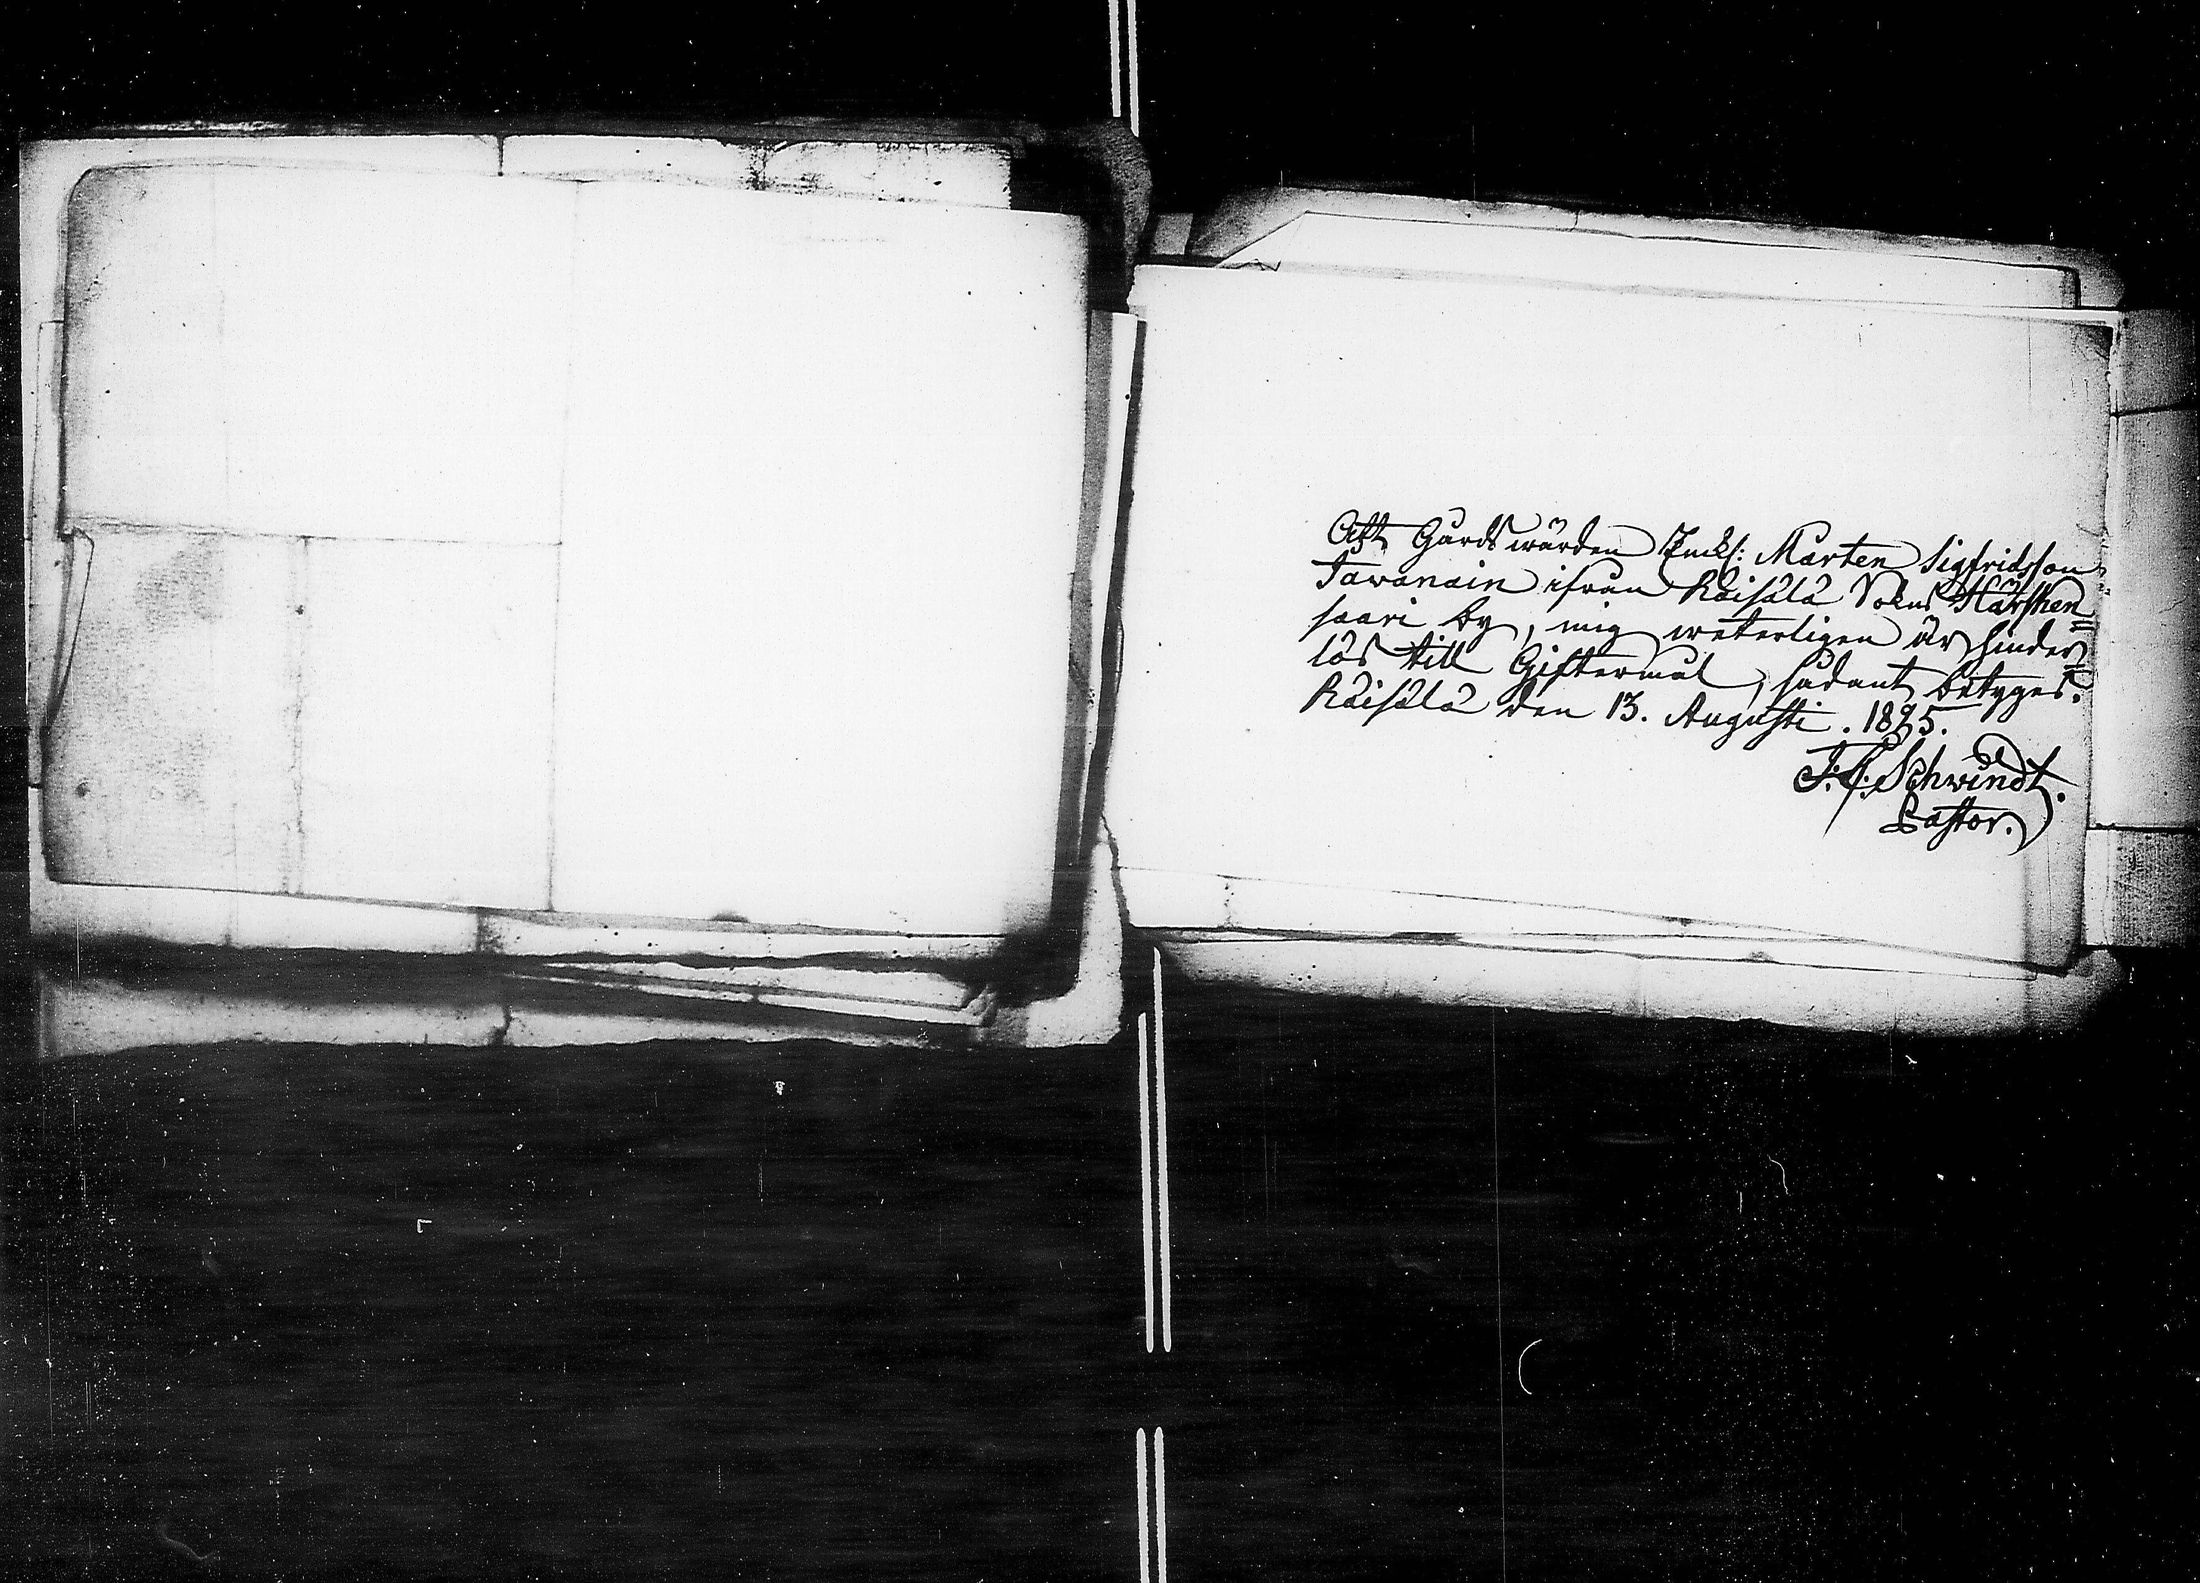 Att Gårdswärden Enkl: Mårten Sigfridsson
Tawanain ifrån Räisälä Sokns Härsken=
saari by, mig weterligen är hinder=
lös till Giftermål, sådant betyges.
Räisälä den 13. Augusti. 1825.
Schwindt.
Pastor.